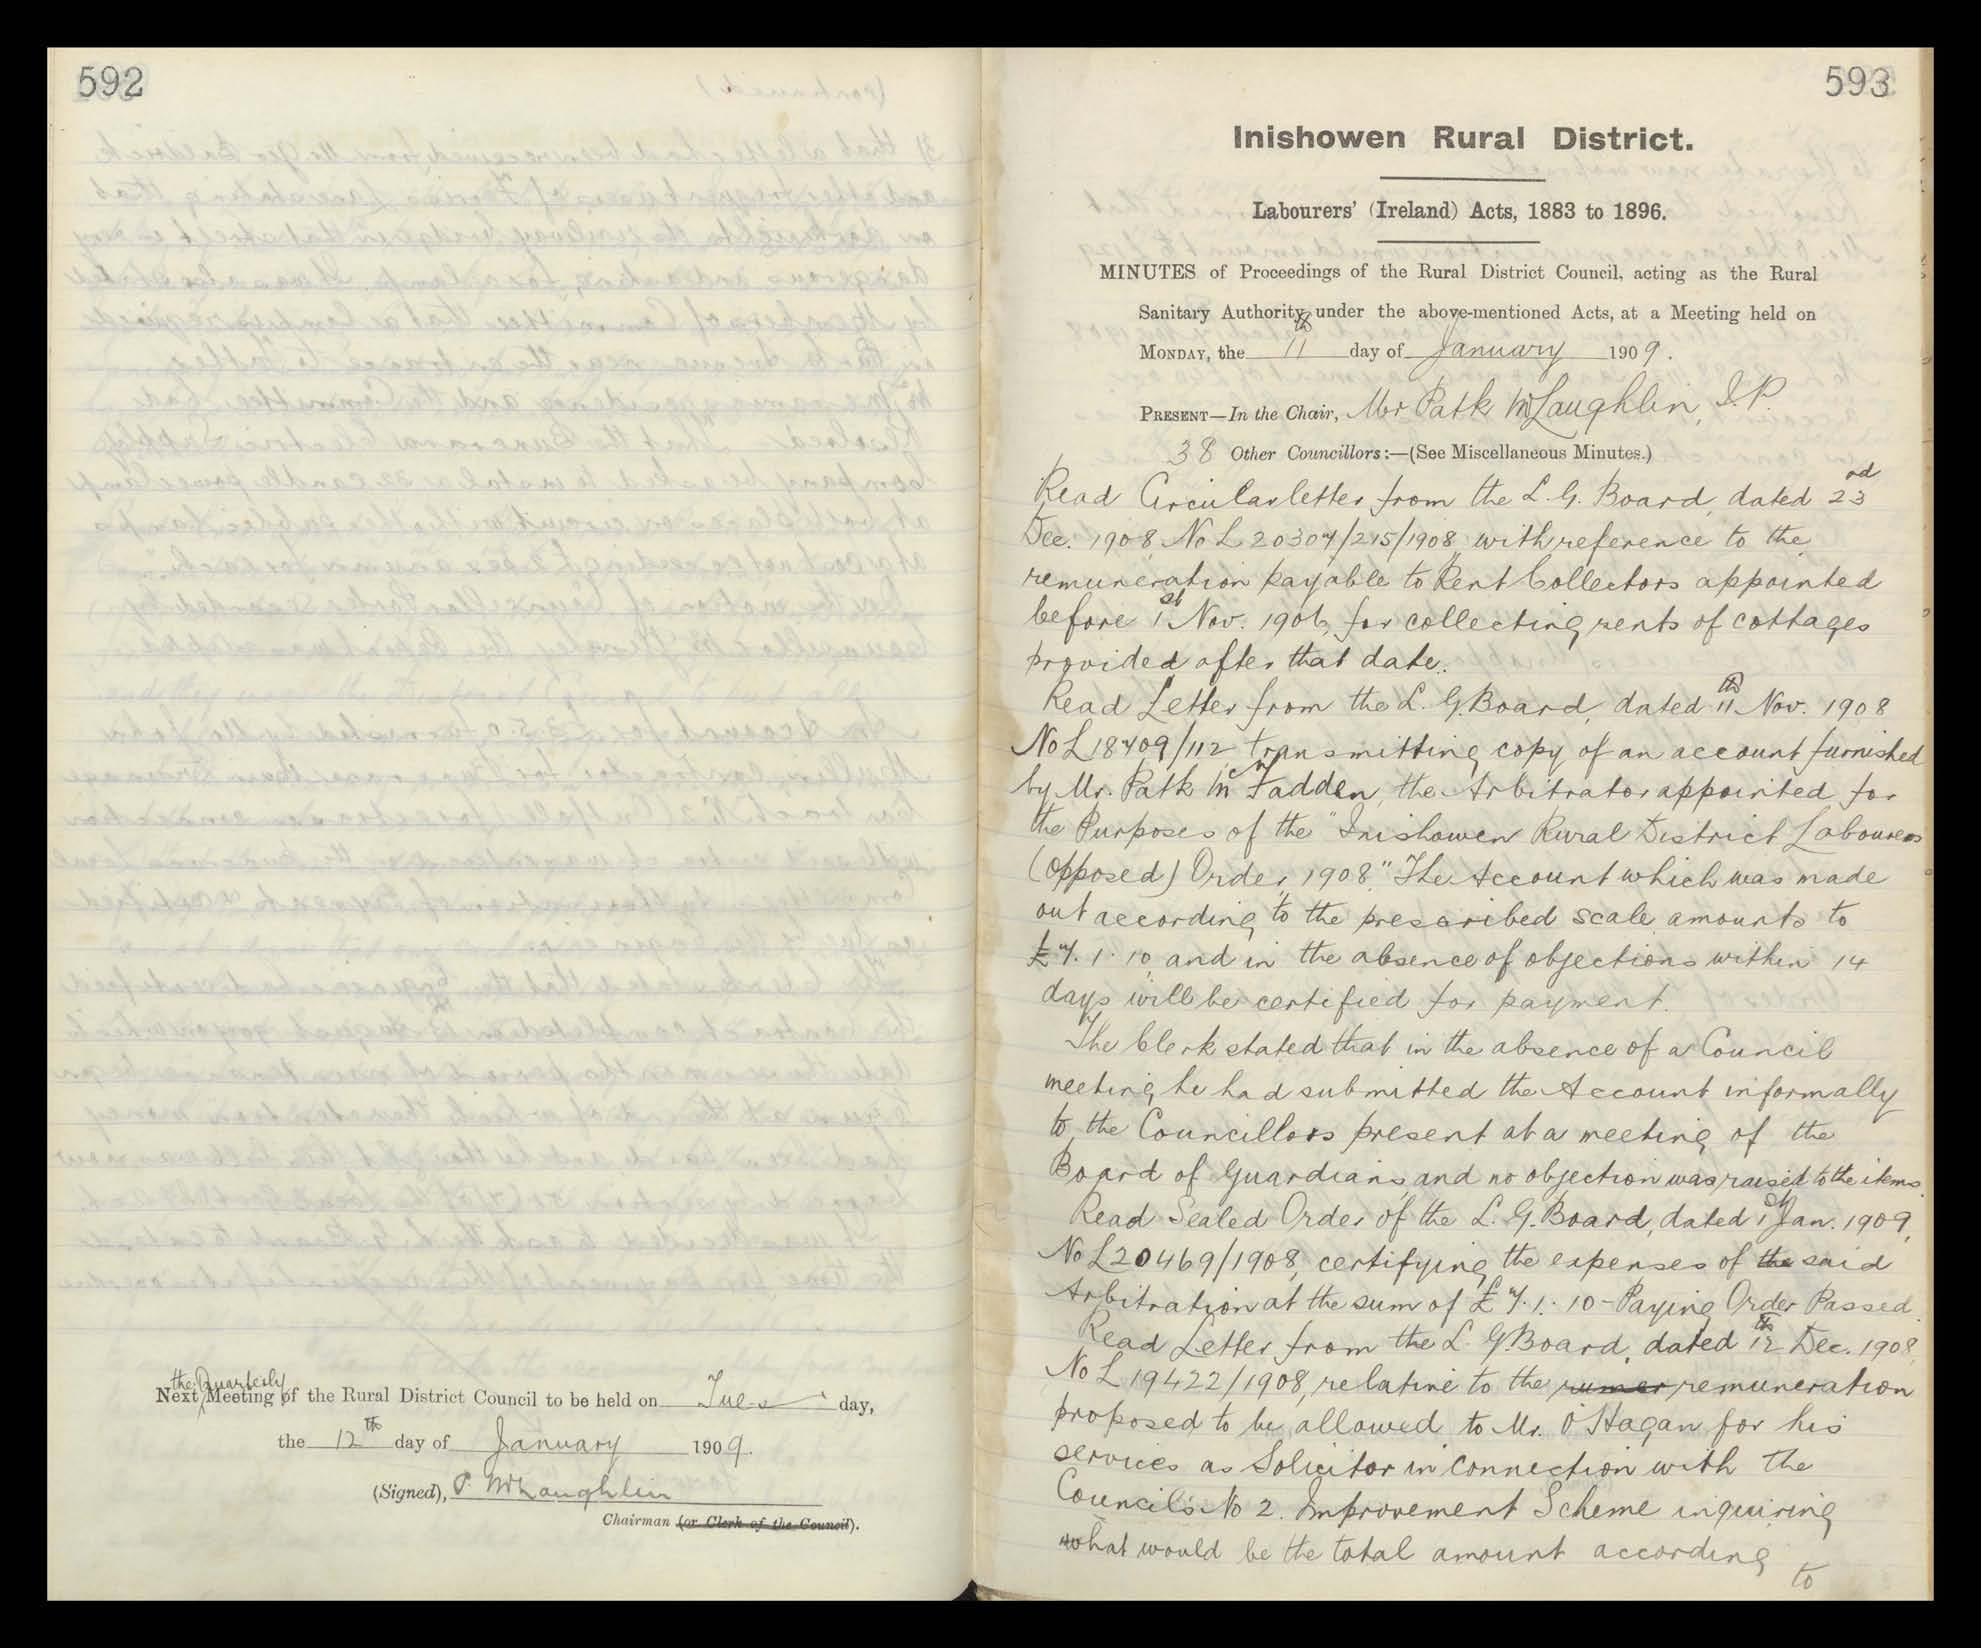 592
Next the Quarterly Meeting of the Rural District Council to be held on Tues day,
the 12th day of January 1909.
(Signed), P. McLaughlin
Chairman (or Clerk of the Council).
593
Inishowen Rural District.
Labourers' (Ireland) Acts, 1883 to 1896.
MINUTES of Proceedings of the Rural District Council, acting as the Rural
Sanitary Authority under the above-mentioned Acts, at a Meeting held on
MONDAY, the 11th day of January 1909.
PRESENT—In the Chair, Mr Patk McLaughlin, J.P.
38 Other Councillors:—(See Miscellaneous Minutes.)
Read Circular letter from the L. G. Board, dated 23rd
Dec. 1908, No L 20307/215/1908, with reference to the
remuneration payable to Rent Collectors appointed
before 1st Nov. 1906, for collecting rents of cottages
provided after that date.
Read Letter from the L. G. Board, dated 11th Nov. 1908
No L 18709/112 transmitting copy of an account furnished
by Mr. Patk McFadden, the Arbitrator appointed for
the Purposes of the "Inishowen Rural District Labourers
(opposed) Order, 1908." The Account which was made
out according to the prescribed scale amounts to
£7. 1. 10 and in the absence of objections within 14
days will be certified for payment.
The Clerk stated that in the absence of a Council
meeting he had submitted the Account informally
to the Councillors present at a meeting of the
Board of Guardians, and no objection was raised to the items.
Read Sealed Order of the L. G. Board, dated 1st Jan. 1909,
No L 20469/1908, certifying the expenses of the said
Arbitration at the sum of £7. 1. 10 - Paying Order Passed.
Read Letter from the L. G. Board, dated 12th Dec. 1908,
No L 19422/1908, relative to the rumer remuneration
proposed to be allowed to Mr. O'Hagan for his
services as Solicitor in connection with the
Council's No 2. Improvement Scheme inquiring
what would be the total amount according
to